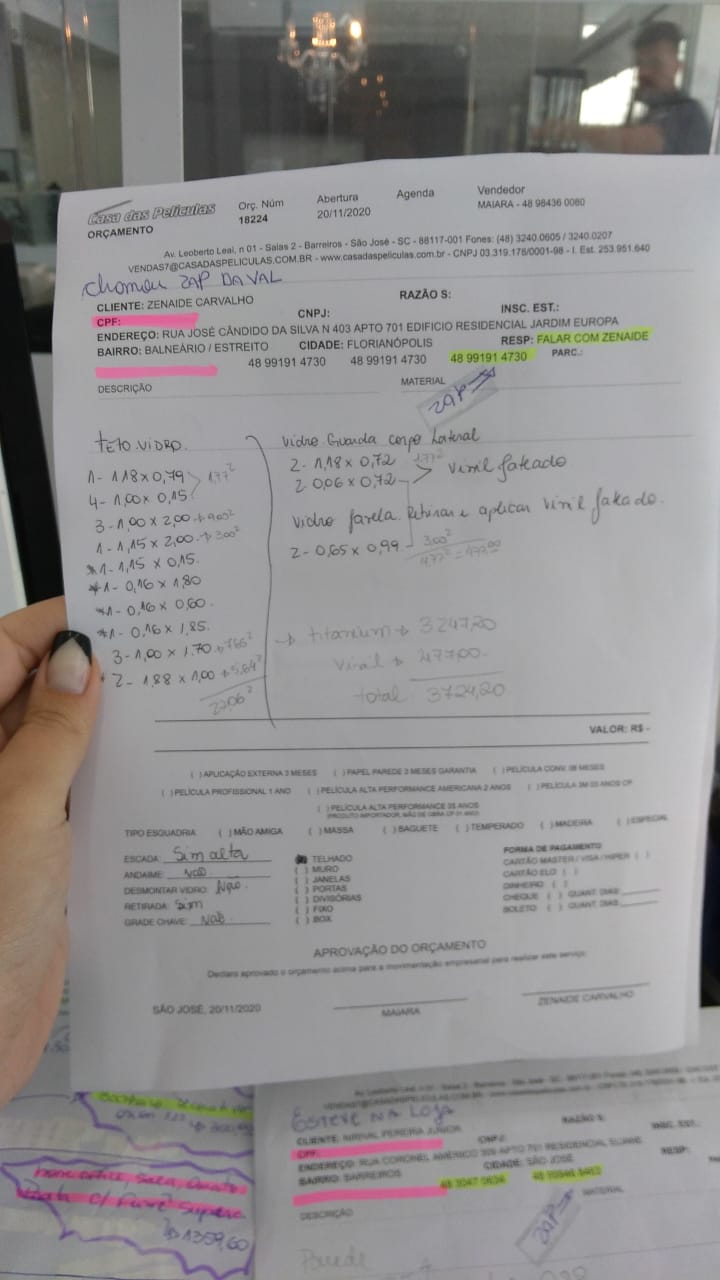 Casa das Películas
ORÇAMENTO
Orç. Núm
18224
Abertura
20/11/2020
Agenda
Vendedor
MAIARA - 48 98436 0080
Av. Leoberto Leal, n 01 - Salas 2 - Barreiros - São José - SC - 88117-001 Fones: (48) 3240.0605 / 3240.0207
VENDAS7@CASADASPELICULAS.COM.BR - www.casadaspeliculas.com.br - CNPJ 03.319.178/0001-98 - I. Est. 253.951.640
chamou ZAP DA VAL
CLIENTE: ZENAIDE CARVALHO
RAZÃO S:
CPF:
CNPJ:
INSC. EST.:
ENDEREÇO: RUA JOSÉ CÂNDIDO DA SILVA N 403 APTO 701 EDIFICIO RESIDENCIAL JARDIM EUROPA
BAIRRO: BALNEÁRIO / ESTREITO
CIDADE: FLORIANÓPOLIS
RESP: FALAR COM ZENAIDE
48 99191 4730
48 99191 4730
48 99191 4730
PARC.:
DESCRIÇÃO
MATERIAL
ZAP
TETO VIDRO
1- 1,18 x 0,79
1,77²
4- 1,00 x 0,15
3- 1,00 x 2,00
1- 1,15 x 2,00 → 3,00²
*1- 1,15 x 0,15
*1- 0,16 x 1,80
*1- 0,16 x 0,60
*1- 0,16 x 1,85
3- 1,00 x 1,70 → 7,65²
* 2- 1,88 x 1,00 → 5,64²
Vidro Guarda corpo lateral
2- 1,18 x 0,72
1,77²
2- 0,06 x 0,72
Vinil fateado
Vidro Janela. Retirar e aplicar Vinil fatado.
2- 0,65 x 0,99 - 3,00²
4,77² = 477,00
→ titanium → 3247,20
Vinil → 477,00
total 3724,20
VALOR: R$ -
( ) APLICAÇÃO EXTERNA 3 MESES ( ) PAPEL PAREDE 3 MESES GARANTIA ( ) PELÍCULA CONV. 08 MESES
( ) PELÍCULA PROFISSIONAL 1 ANO ( ) PELÍCULA ALTA PERFORMANCE AMERICANA 2 ANOS
( ) PELÍCULA ALTA PERFORMANCE 05 ANOS
TIPO ESQUADRIA ( ) MÃO AMIGA ( ) MASSA ( ) BAGUETE ( ) TEMPERADO ( ) MADEIRA ( ) ESPECIAL
ESCADA: Sim alta
ANDAIME: Não
DESMONTAR VIDRO: Não
RETIRADA: Sim
GRADE CHAVE: Não
TELHADO
( ) MURO
( ) JANELAS
( ) PORTAS
( ) DIVISÓRIAS
( ) FIXO
( ) BOX
FORMA DE PAGAMENTO
CARTÃO MASTER / VISA / HIPER ( )
CARTÃO ELO ( )
DINHEIRO ( )
CHEQUE ( ) QUANT. DIAS
BOLETO ( ) QUANT. DIAS
APROVAÇÃO DO ORÇAMENTO
Declaro aprovado o orçamento acima para a movimentação empresarial para realizar este serviço.
SÃO JOSÉ, 20/11/2020
MAIARA
ZENAIDE CARVALHO
ESTEVE NA LOJA
CLIENTE: NIRIVAL PEREIRA JUNIOR
RAZÃO S:
CPF:
CNPJ:
INSC. EST.:
ENDEREÇO: RUA CORONEL AMÉRICO 309 APTO 701 RESIDENCIAL
BAIRRO: BARREIROS
CIDADE: SÃO JOSÉ
RESP:
DESCRIÇÃO
MATERIAL
ZAP
Parede
1359,60